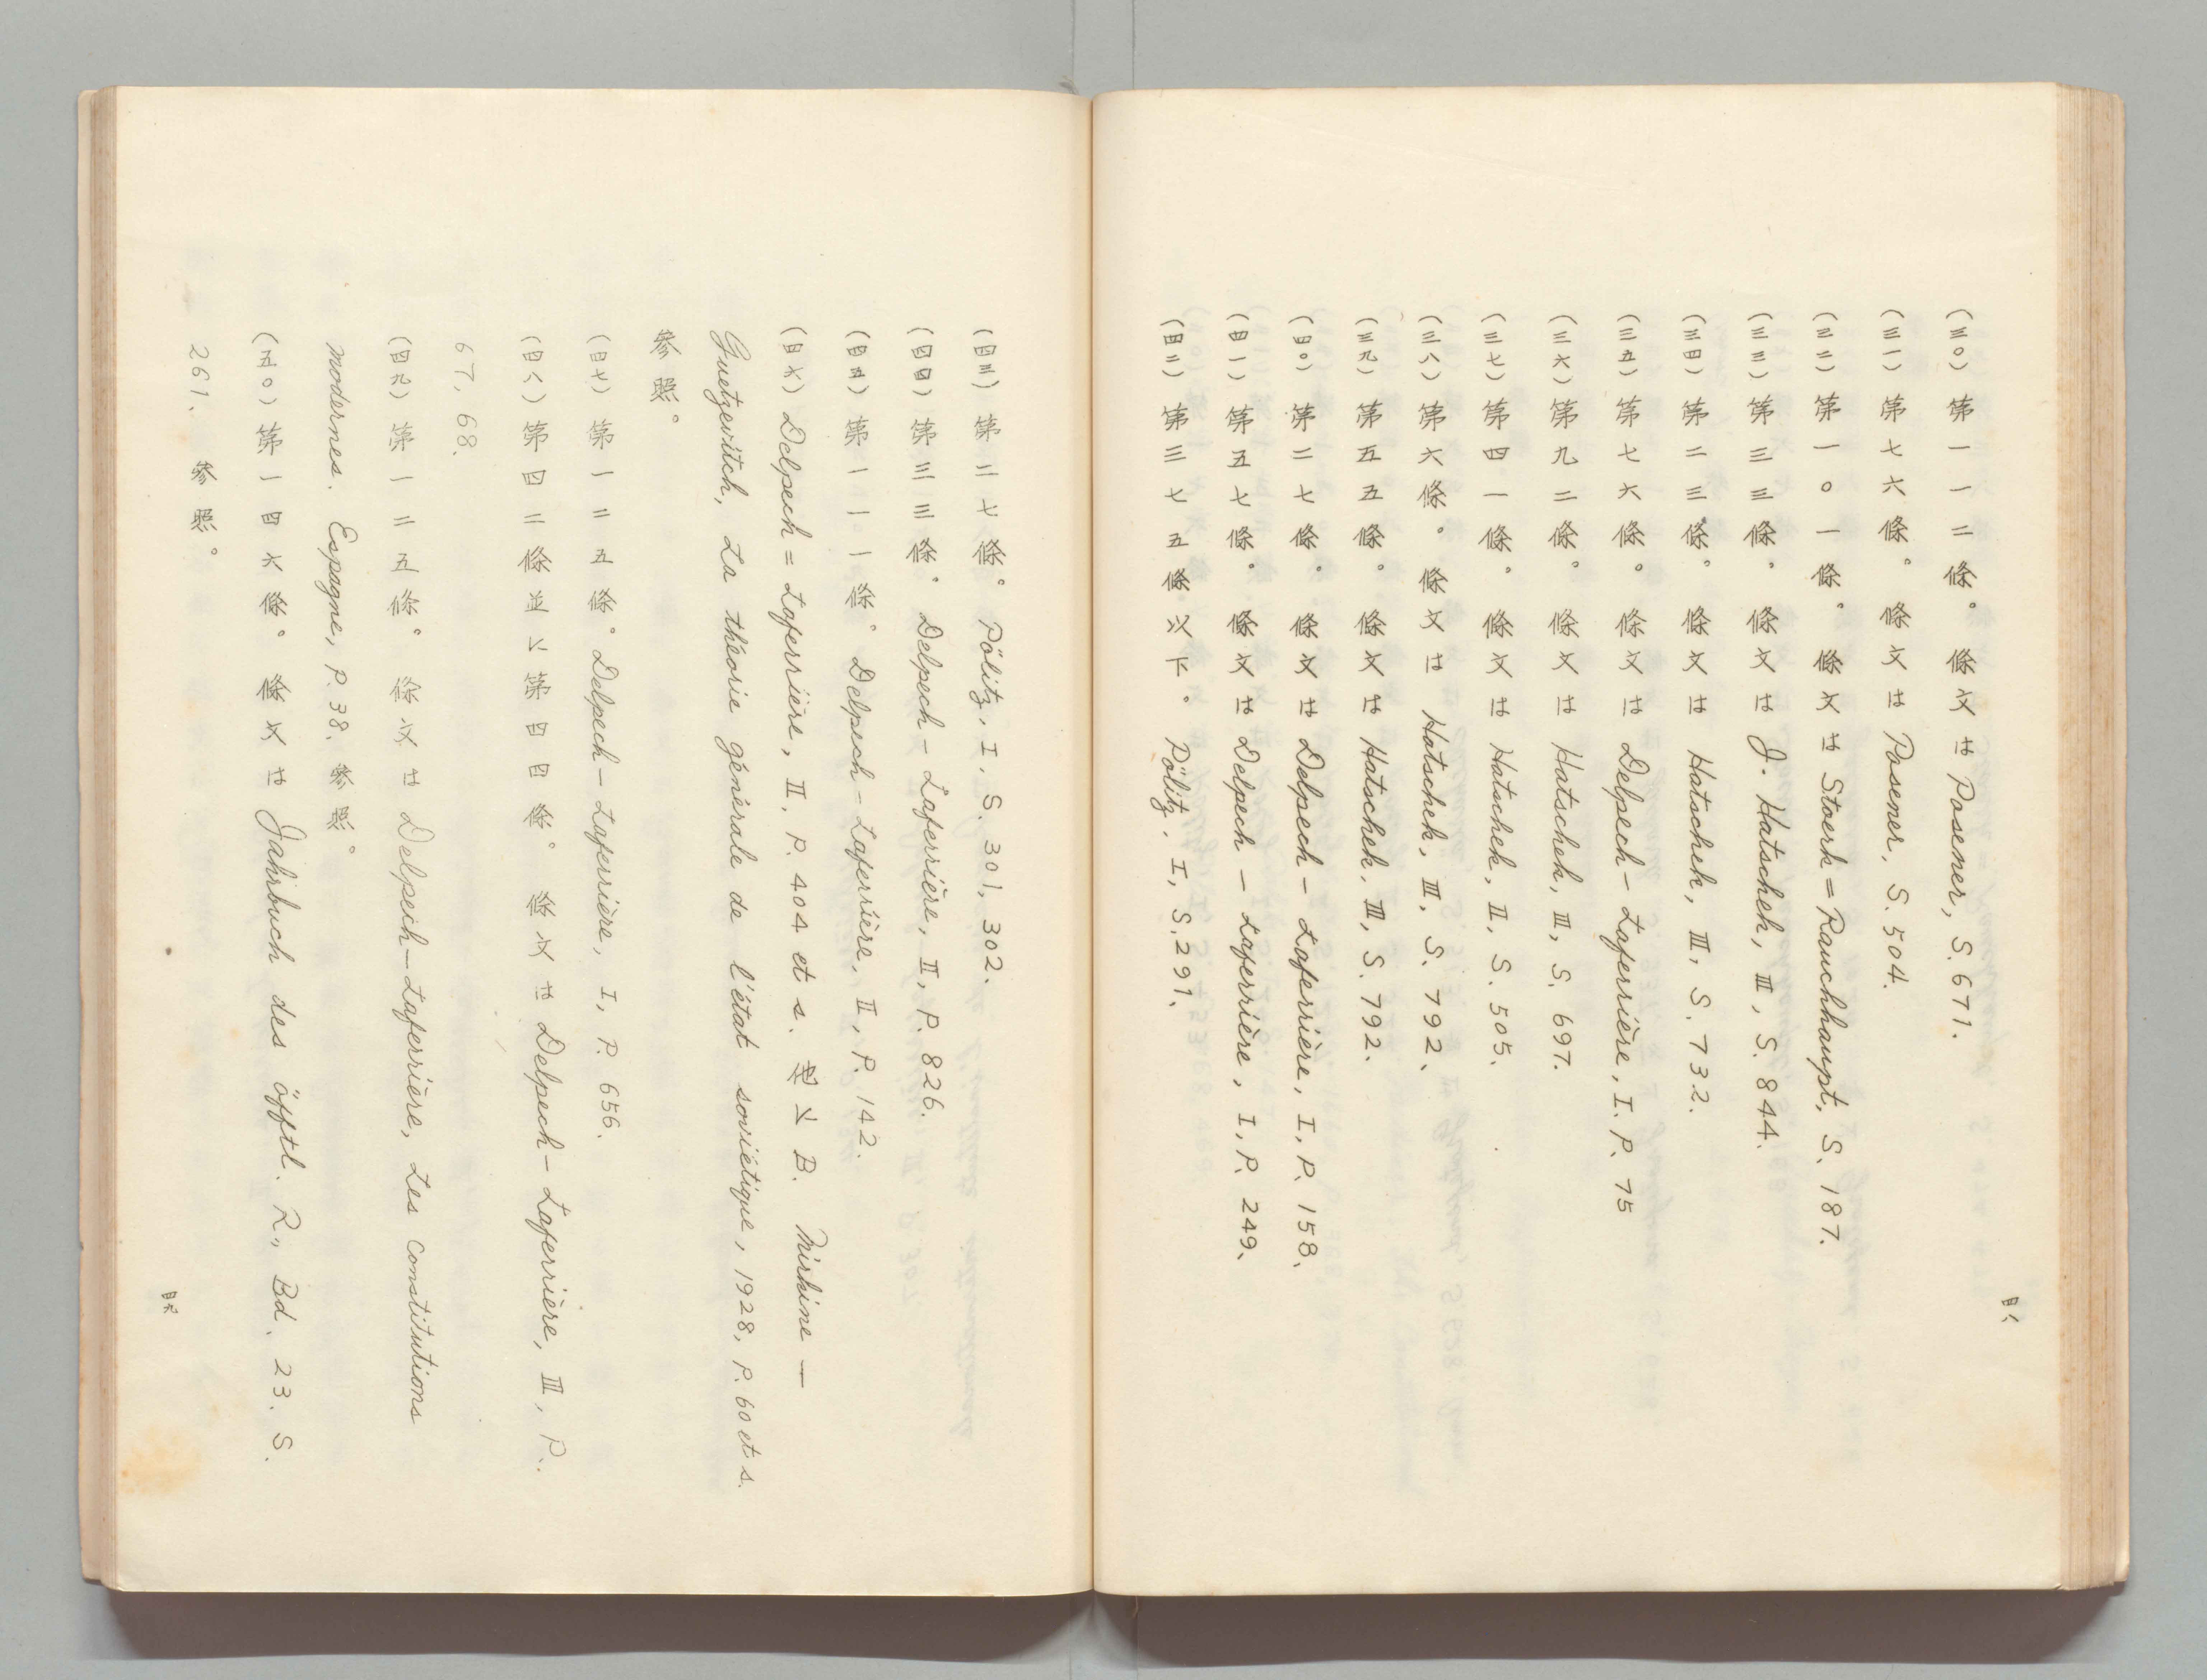 (三〇)第一一二條。條文は Posener, S. 671.
(三一)第七六條。條文は Posener, S. 504.
(三二)第一〇一條。條文は Stoerk=Rauchhaupt, S. 187.
(三三)第三三條。條文は J. Hatschek, III, S. 844.
(三四)第二三條。條文は Hatschek, III, S. 732.
(三五)第七六條。條文は Delpech-Laferrière, I. P. 75
(三六)第九二條。條文は Hatschek, III, S. 697.
(三七)第四一條。條文は Hatschek, II, S. 505.
(三八)第六條。條文は Hatschek, III, S. 792.
(三九)第五五條。條文は Hatschek, III, S. 792.
(四〇)第二七條。條文は Delpech-Laferrière, I, P. 158.
(四一)第五七條。條文は Delpech-Laferrière, I, P. 249.
(四二)第三七五條以下。Pölitz. I, S. 291.
四八
(四三)第二七條。Pölitz. I. S. 301, 302.
(四四)第三三條。Delpech-Laferrière, II, P. 826.
(四五)第一一一條。Delpech-Laferrière, II, P. 142.
(四六)Delpech=Laferrière, II, P. 404 et s. B. Mirkine-
Guetzevitch, La théorie générale de l'état soviétique, 1928, P. 60 et s.
参照。
(四七)第一二五條。Delpech-Laferrière, I, P. 656.
(四八)第四二條並に第四四條。條文は Delpech-Laferrière, III, P.
67, 68.
(四九)第一二五條。條文は Delpech-Laferrière, Les constitutions
modernes. Espagne, P. 38. 参照。
(五〇)第一四六條。條文は Jahrbuch des öfftl. R., Bd. 23. S.
261. 参照。
四九